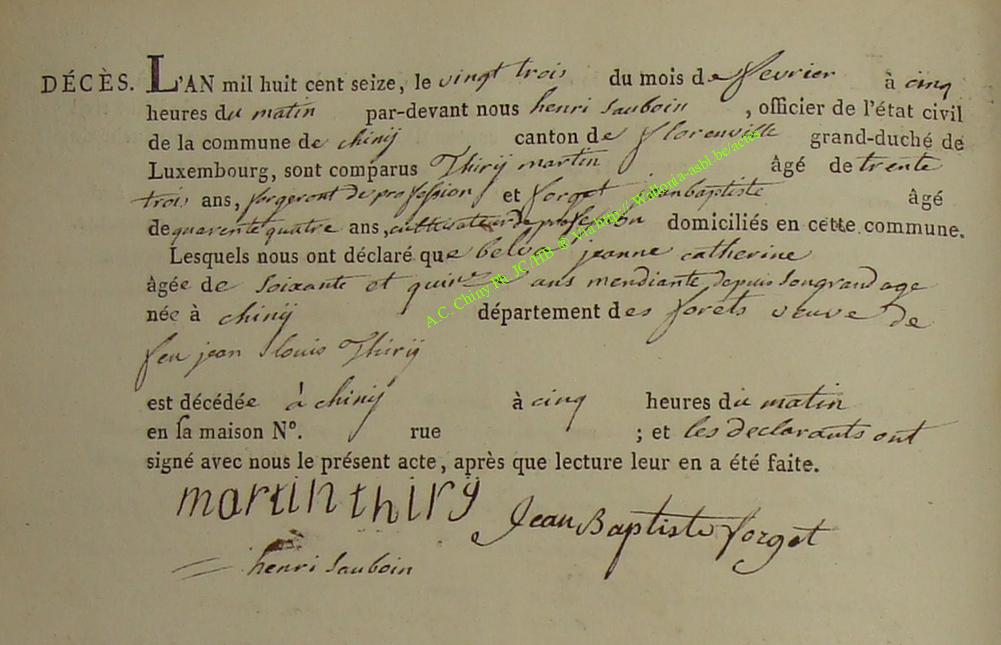 DÉCÈS. L'AN mil huit cent seize, le vingt trois du mois de fevrier à cinq
heures du matin par-devant nous henri sauboin , officier de l'état civil
de la commune de chinÿ canton de florenville grand-duché de
Luxembourg, sont comparus Thirÿ martin âgé de trente
trois ans, forgeront de profession et forget jeanbaptiste âgé
de quarente quatre ans, cultivateur de profession domiciliés en cette commune.
Lesquels nous ont déclaré que jeanne catherine
âgée de soixante et quinze ans mendiante depuis son grand age
née à chinÿ département des forêts veuve de
feu jean louis Thirÿ
est décédée à chinÿ à cinq heures du matin
en sa maison N°. rue ; et les declarants ont
signé avec nous le présent acte, après que lecture leur en a été faite.
martin thirÿ Jean Baptiste forget
henri sauboin
A.C. Chiny Ph. JC /HB @ Via http:// Wallonia-asbl.be/actes